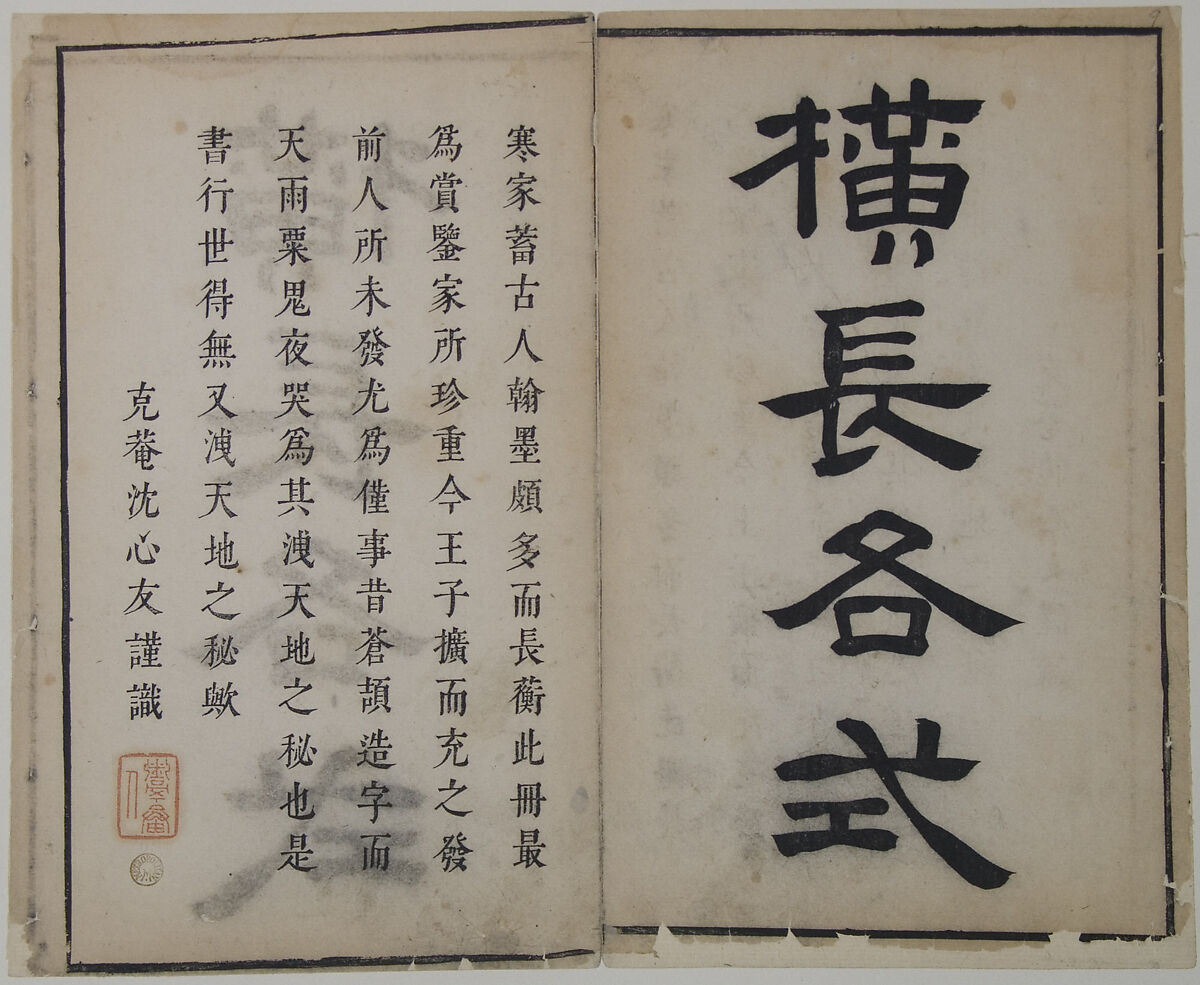 橫長各式
寒家蓄古人翰墨頗多而長蘅此冊最
爲賞鑒家所珍重今王子擴而充之發
前人所未發尤爲僅事昔蒼頡造字而
天雨粟鬼夜哭爲其洩天地之秘也是
書行世得無又洩天地之秘歟
克菴沈心友謹識